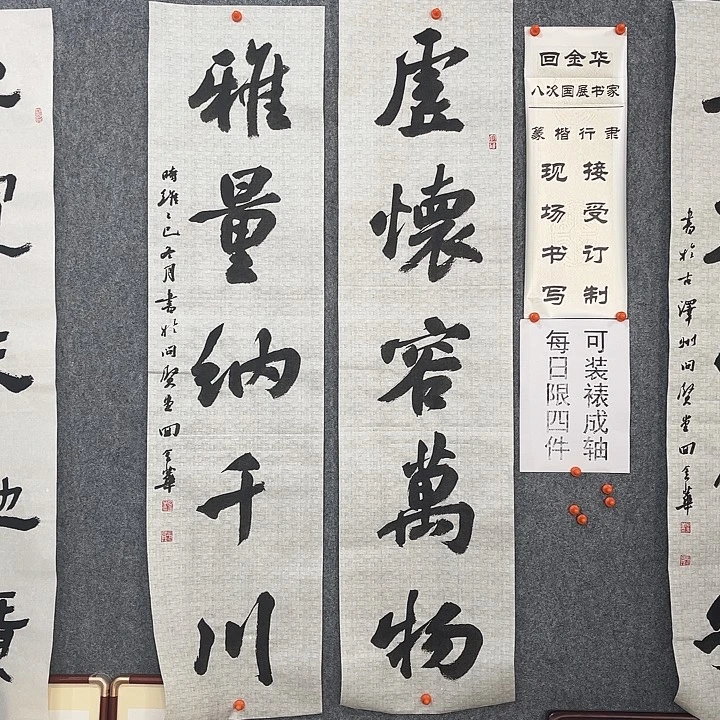 虚懐容萬物
雅量纳千川
時維乙巳冬月書於问賢堂回金華
回金华
八次国展书家
篆楷行隶
接受订制
现场书写
可装裱成轴
每日限四件
書於古澤州问賢堂回金華